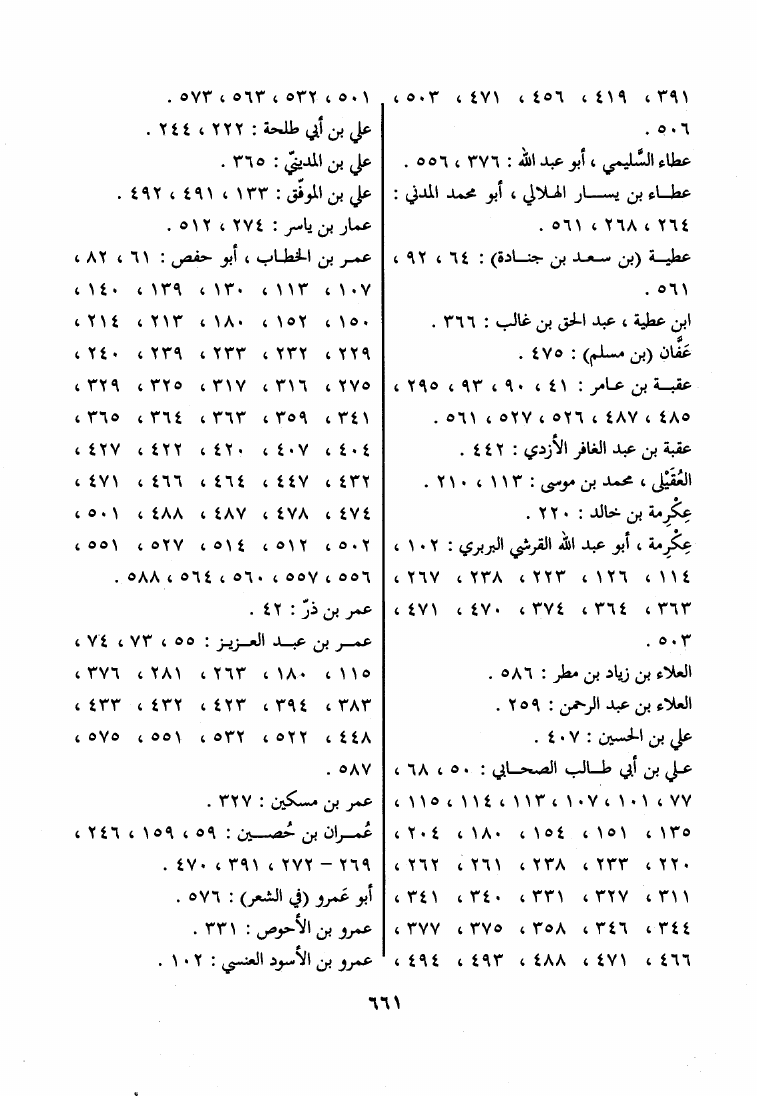 ٣٩١ ، ٤١٩ ، ٤٥٦ ، ٤٧١ ، ٥٠٣ ،
٥٠٦ .
عطاء السَّليمي ، أبو عبد الله : ٣٧٦ ، ٥٥٦ .
عطاء بن يسار الهلالي ، أبو محمد المدني :
٢٦٤ ، ٢٦٨ ، ٥٦١ .
عطية (بن سعد بن جنادة) : ٦٤ ، ٩٢ ،
٥٦١ .
ابن عطية ، عبد الحق بن غالب : ٣٦٦ .
عَفَّان (بن مسلم) : ٤٧٥ .
عقبة بن عامر : ٤١ ، ٩٠ ، ٩٣ ، ٢٩٥ ،
٤٨٥ ، ٤٨٧ ، ٥٢٦ ، ٥٢٧ ، ٥٦١ .
عقبة بن عبد الغافر الأزدي : ٤٤٢ .
العُقَيْلي ، محمد بن موسى : ١١٣ ، ٢١٠ .
عِكْرِمة بن خالد : ٢٢٠ .
عِكْرِمة ، أبو عبد الله القرشي البربري : ١٠٢ ،
١١٤ ، ١٢٦ ، ٢٢٣ ، ٢٣٨ ، ٢٦٧ ،
٣٦٣ ، ٣٦٤ ، ٣٧٤ ، ٤٧٠ ، ٤٧١ ،
٥٠٣ .
العلاء بن زياد بن مطر : ٥٨٦ .
العلاء بن عبد الرحمن : ٢٥٩ .
علي بن الحسين : ٤٠٧ .
علي بن أبي طالب الصحابي : ٥٠ ، ٦٨ ،
٧٧ ، ١٠١ ، ١٠٧ ، ١١٣ ، ١١٤ ، ١١٥ ،
١٣٥ ، ١٥١ ، ١٥٤ ، ١٨٠ ، ٢٠٤ ،
٢٢٠ ، ٢٣٣ ، ٢٣٨ ، ٢٦١ ، ٢٦٢ ،
٣١١ ، ٣٢٧ ، ٣٣١ ، ٣٤٠ ، ٣٤١ ،
٣٤٤ ، ٣٤٦ ، ٣٥٨ ، ٣٧٥ ، ٣٧٧ ،
٤٦٦ ، ٤٧١ ، ٤٨٨ ، ٤٩٣ ، ٤٩٤ ،
٥٠١ ، ٥٣٢ ، ٥٦٣ ، ٥٧٣ .
علي بن أبي طلحة : ٢٢٢ ، ٢٤٤ .
علي بن المدينيّ : ٣٦٥ .
علي بن الموفّق : ١٣٣ ، ٤٩١ ، ٤٩٢ .
عمار بن ياسر : ٢٧٤ ، ٥١٢ .
عمر بن الخطاب ، أبو حفص : ٦١ ، ٨٢ ،
١٠٧ ، ١١٣ ، ١٣٠ ، ١٣٩ ، ١٤٠ ،
١٥٠ ، ١٥٢ ، ١٨٠ ، ٢١٣ ، ٢١٤ ،
٢٢٩ ، ٢٣٢ ، ٢٣٣ ، ٢٣٩ ، ٢٤٠ ،
٢٧٥ ، ٣١٦ ، ٣١٧ ، ٣٢٥ ، ٣٢٩ ،
٣٤١ ، ٣٥٩ ، ٣٦٣ ، ٣٦٤ ، ٣٦٥ ،
٤٠٤ ، ٤٠٧ ، ٤٢٠ ، ٤٢٢ ، ٤٢٧ ،
٤٣٢ ، ٤٤٧ ، ٤٦٤ ، ٤٦٦ ، ٤٧١ ،
٤٧٤ ، ٤٧٨ ، ٤٨٧ ، ٤٨٨ ، ٥٠١ ،
٥٠٢ ، ٥١٢ ، ٥١٤ ، ٥٢٧ ، ٥٥١ ،
٥٥٦ ، ٥٥٧ ، ٥٦٠ ، ٥٦٤ ، ٥٨٨ .
عمر بن ذرّ : ٤٢ .
عمر بن عبد العزيز : ٥٥ ، ٧٣ ، ٧٤ ،
١١٥ ، ١٨٠ ، ٢٦٣ ، ٢٨١ ، ٣٧٦ ،
٣٨٣ ، ٣٩٤ ، ٤٢٣ ، ٤٣٢ ، ٤٣٣ ،
٤٤٨ ، ٥٢٢ ، ٥٣٢ ، ٥٥١ ، ٥٧٥ ،
٥٨٧ .
عمر بن مسكين : ٣٢٧ .
عُمران بن حُصين : ٥٩ ، ١٥٩ ، ٢٤٦ ،
٢٦٩ – ٢٧٢ ، ٣٩١ ، ٤٧٠ .
أبو عَمرو (في الشعر) : ٥٧٦ .
عمرو بن الأحوص : ٣٣١ .
عمرو بن الأسود العنسي : ١٠٢ .
٦٦١